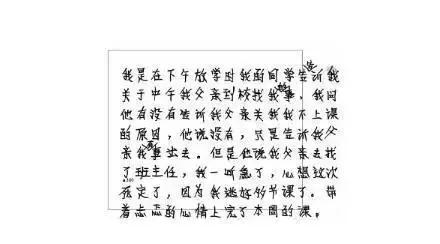 我是在下午放学时我的同学告诉我
关于中午我父亲到校找我事,我问
他有没有告诉我父亲关我我不上课
的原因,他说没有,只是告诉我父
亲我出去。但是他说我父亲去找
了班主任,我一听急了,心想这次
死定了,因为我逃好多节课了。带
着忐忑的心情上完了本周的课。